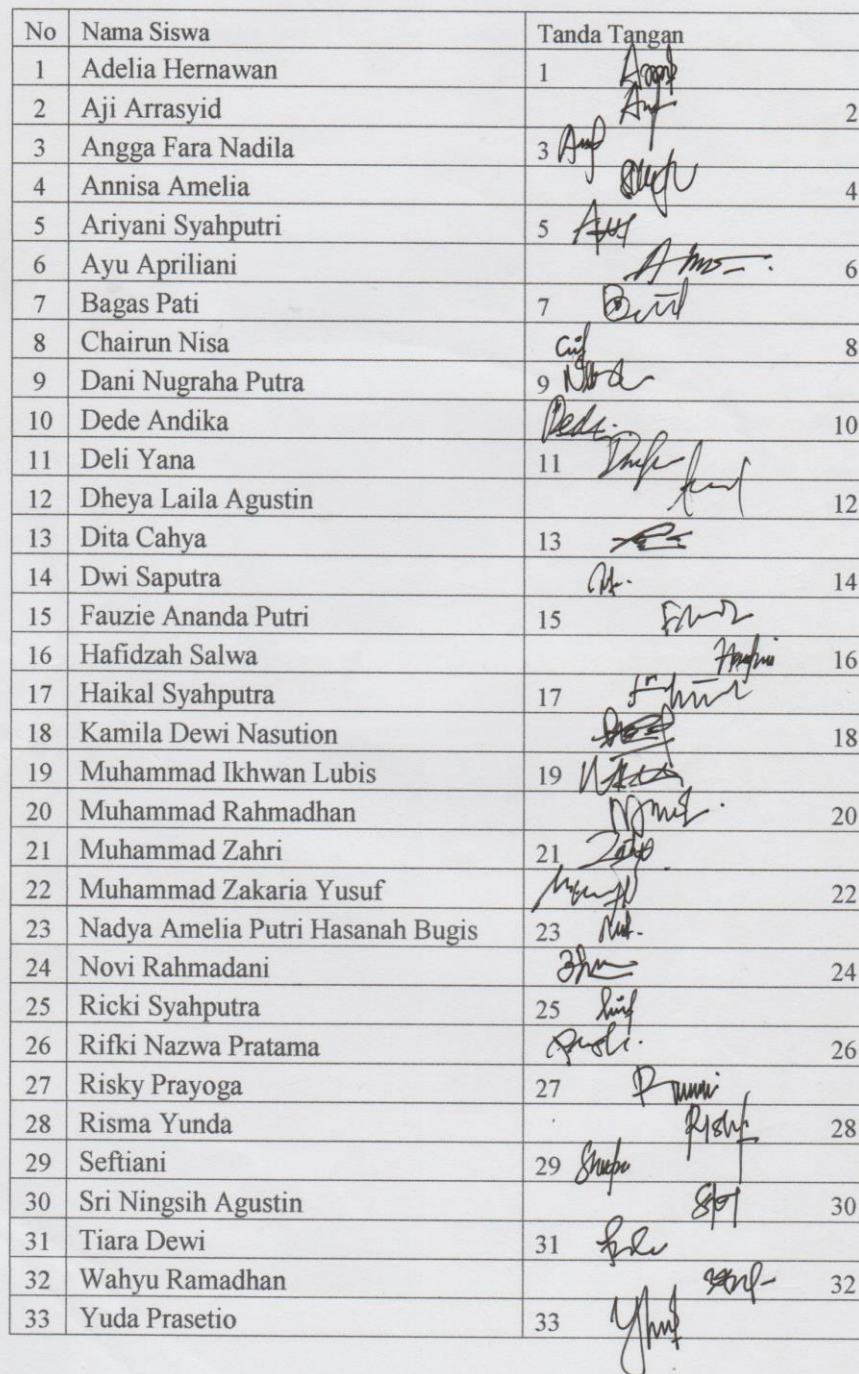 No Nama Siswa Tanda Tangan
1 Adelia Hernawan 1
2 Aji Arrasyid 2
3 Angga Fara Nadila 3
4 Annisa Amelia 4
5 Ariyani Syahputri 5
6 Ayu Apriliani 6
7 Bagas Pati 7
8 Chairun Nisa 8
9 Dani Nugraha Putra 9
10 Dede Andika 10
11 Deli Yana 11
12 Dheya Laila Agustin 12
13 Dita Cahya 13
14 Dwi Saputra 14
15 Fauzie Ananda Putri 15
16 Hafidzah Salwa 16
17 Haikal Syahputra 17
18 Kamila Dewi Nasution 18
19 Muhammad Ikhwan Lubis 19
20 Muhammad Rahmadhan 20
21 Muhammad Zahri 21
22 Muhammad Zakaria Yusuf 22
23 Nadya Amelia Putri Hasanah Bugis 23
24 Novi Rahmadani 24
25 Ricki Syahputra 25
26 Rifki Nazwa Pratama 26
27 Risky Prayoga 27
28 Risma Yunda 28
29 Seftiani 29
30 Sri Ningsih Agustin 30
31 Tiara Dewi 31
32 Wahyu Ramadhan 32
33 Yuda Prasetio 33